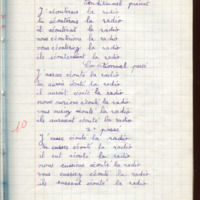 Conditionnel présent
J'écouterais la radio
tu écouterais la radio
il écouterait la radio
nous écouterions la radio
vous écouteriez la radio
ils écouteraient la radio
Conditionnel passé
J'aurais écouté la radio
tu aurais écouté la radio
il aurait écouté la radio
nous aurions écouté la radio
vous auriez écouté la radio
ils auraient écouté la radio
2e passé
10
J'eusse écouté la radio
tu eusses écouté la radio
il eut écouté la radio
nous eussions écouté la radio
vous eussiez écouté la radio
ils eussent écouté la radio